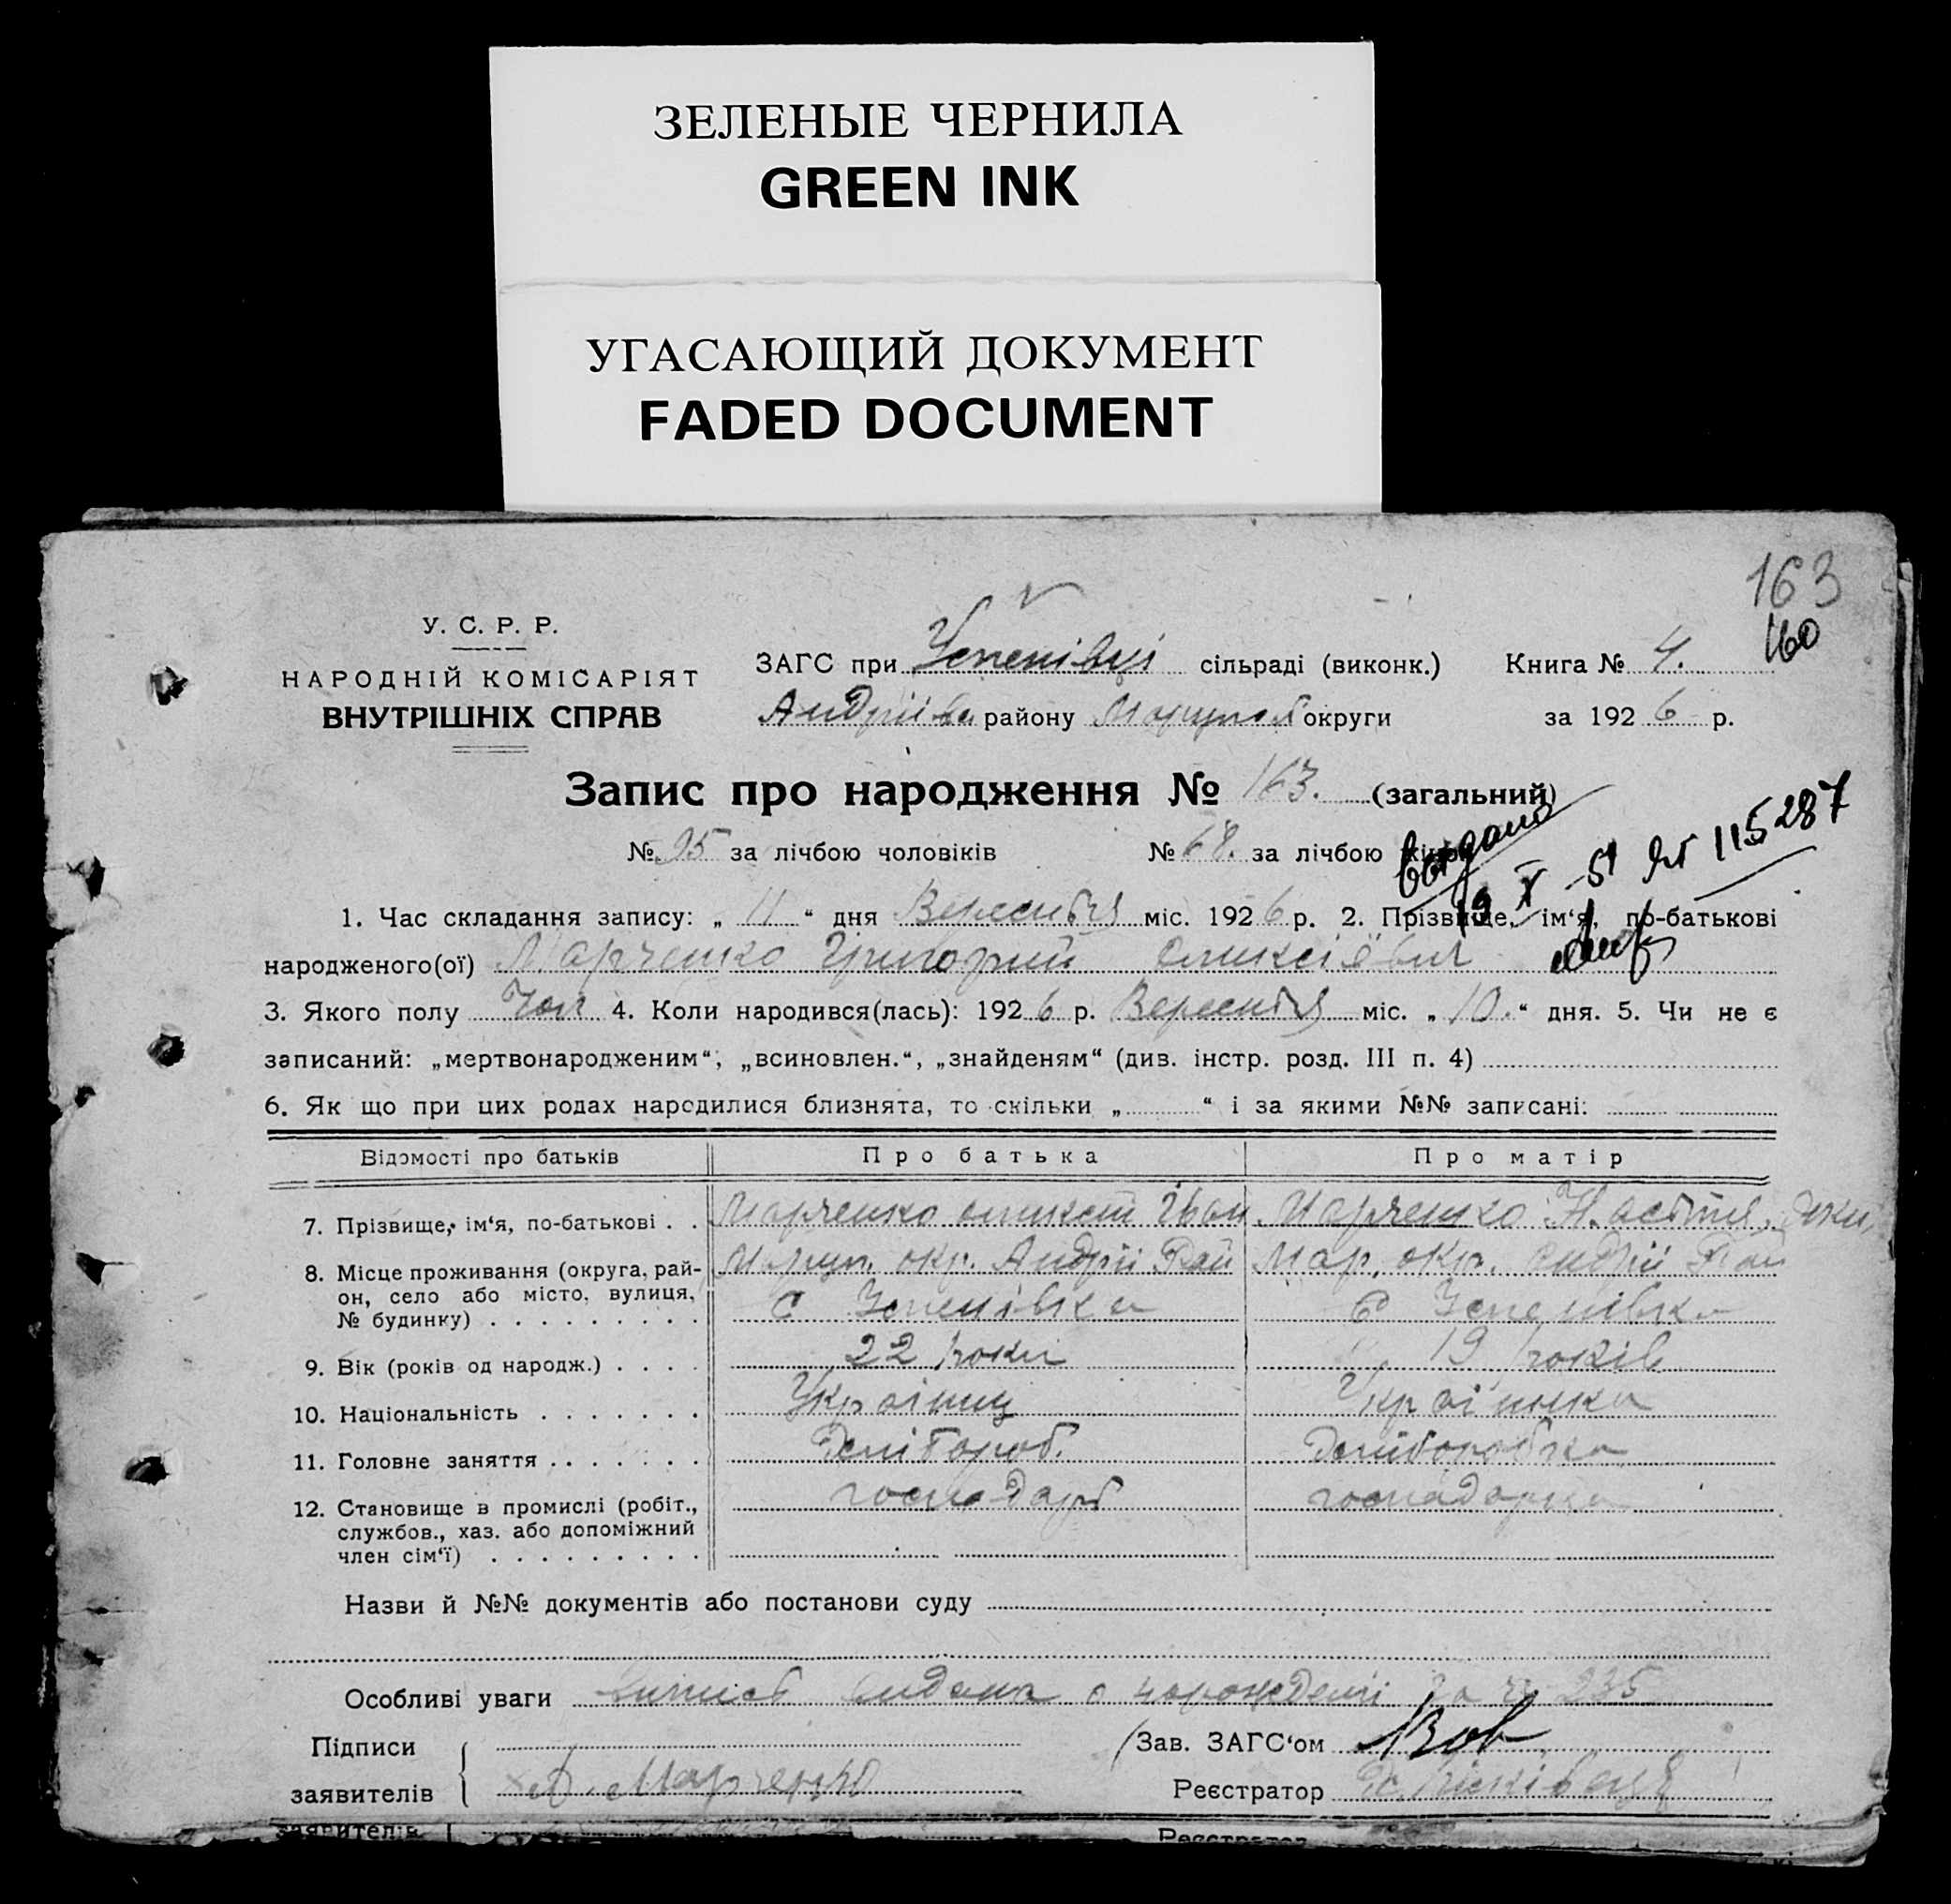 ЗЕЛЕНЫЕ ЧЕРНИЛА
GREEN INK
УГАСАЮЩИЙ ДОКУМЕНТ
FADED DOCUMENT
163
160
У. С. Р. Р.
НАРОДНІЙ КОМІСАРІЯТ
ВНУТРІШНІХ СПРАВ
ЗАГС при Успенівці сільраді (виконк.) Книга № 4.
Андріїв району Маріупол округи за 1926 р.
Запис про народження № 163. (загальний)
№ 95 за лічбою чоловіків № 68. за лічбою жінок
выдано
19 X 51 № 115287
1. Час складання запису: „ 11 “ дня Вересня міс. 1926 р. 2. Прізвище, ім‘я, по-батькові
народженого(ої) Марченко Григорий Оликсіёвич
3. Якого полу Чол 4. Коли народився(лась): 1926 р. Вересня міс. „ 10. “ дня. 5. Чи не є
записаний: „мертвонародженим“, „всиновлен.“, „знайденям“ (див. інстр. розд. III п. 4)
6. Як що при цих родах народилися близнята, то скільки „ “ і за якими №№ записані:
Відомості про батьків Про батька Про матір
7. Прізвище, ім‘я, по-батькові . . Марченко Оликсій Іван Марченко Настя
8. Місце проживання (округа, рай- Маріуп. окр. Андрії Рай Мар. окр. Андрії Рай
он, село або місто, вулиця, С Успенівка С Успенівка
№ будинку) . . . . . . . . .
9. Вік (років од народж.) . . . . 22 роки 19 років
10. Національність . . . . . . . Українц Українка
11. Головне заняття . . . . . . . Хліборoб. Хліборобка
12. Становище в промислі (робіт., господарь господарка
службов., хаз. або допоміжний
член сім‘ї) . . . . . . . . .
Назви й №№ документів або постанови суду
Особливі уваги випись видана о нарождені за № 235
Підписи Зав. ЗАГС‘ом
заявителів А. Марченко Реєстратор
заявителів Реєстратор